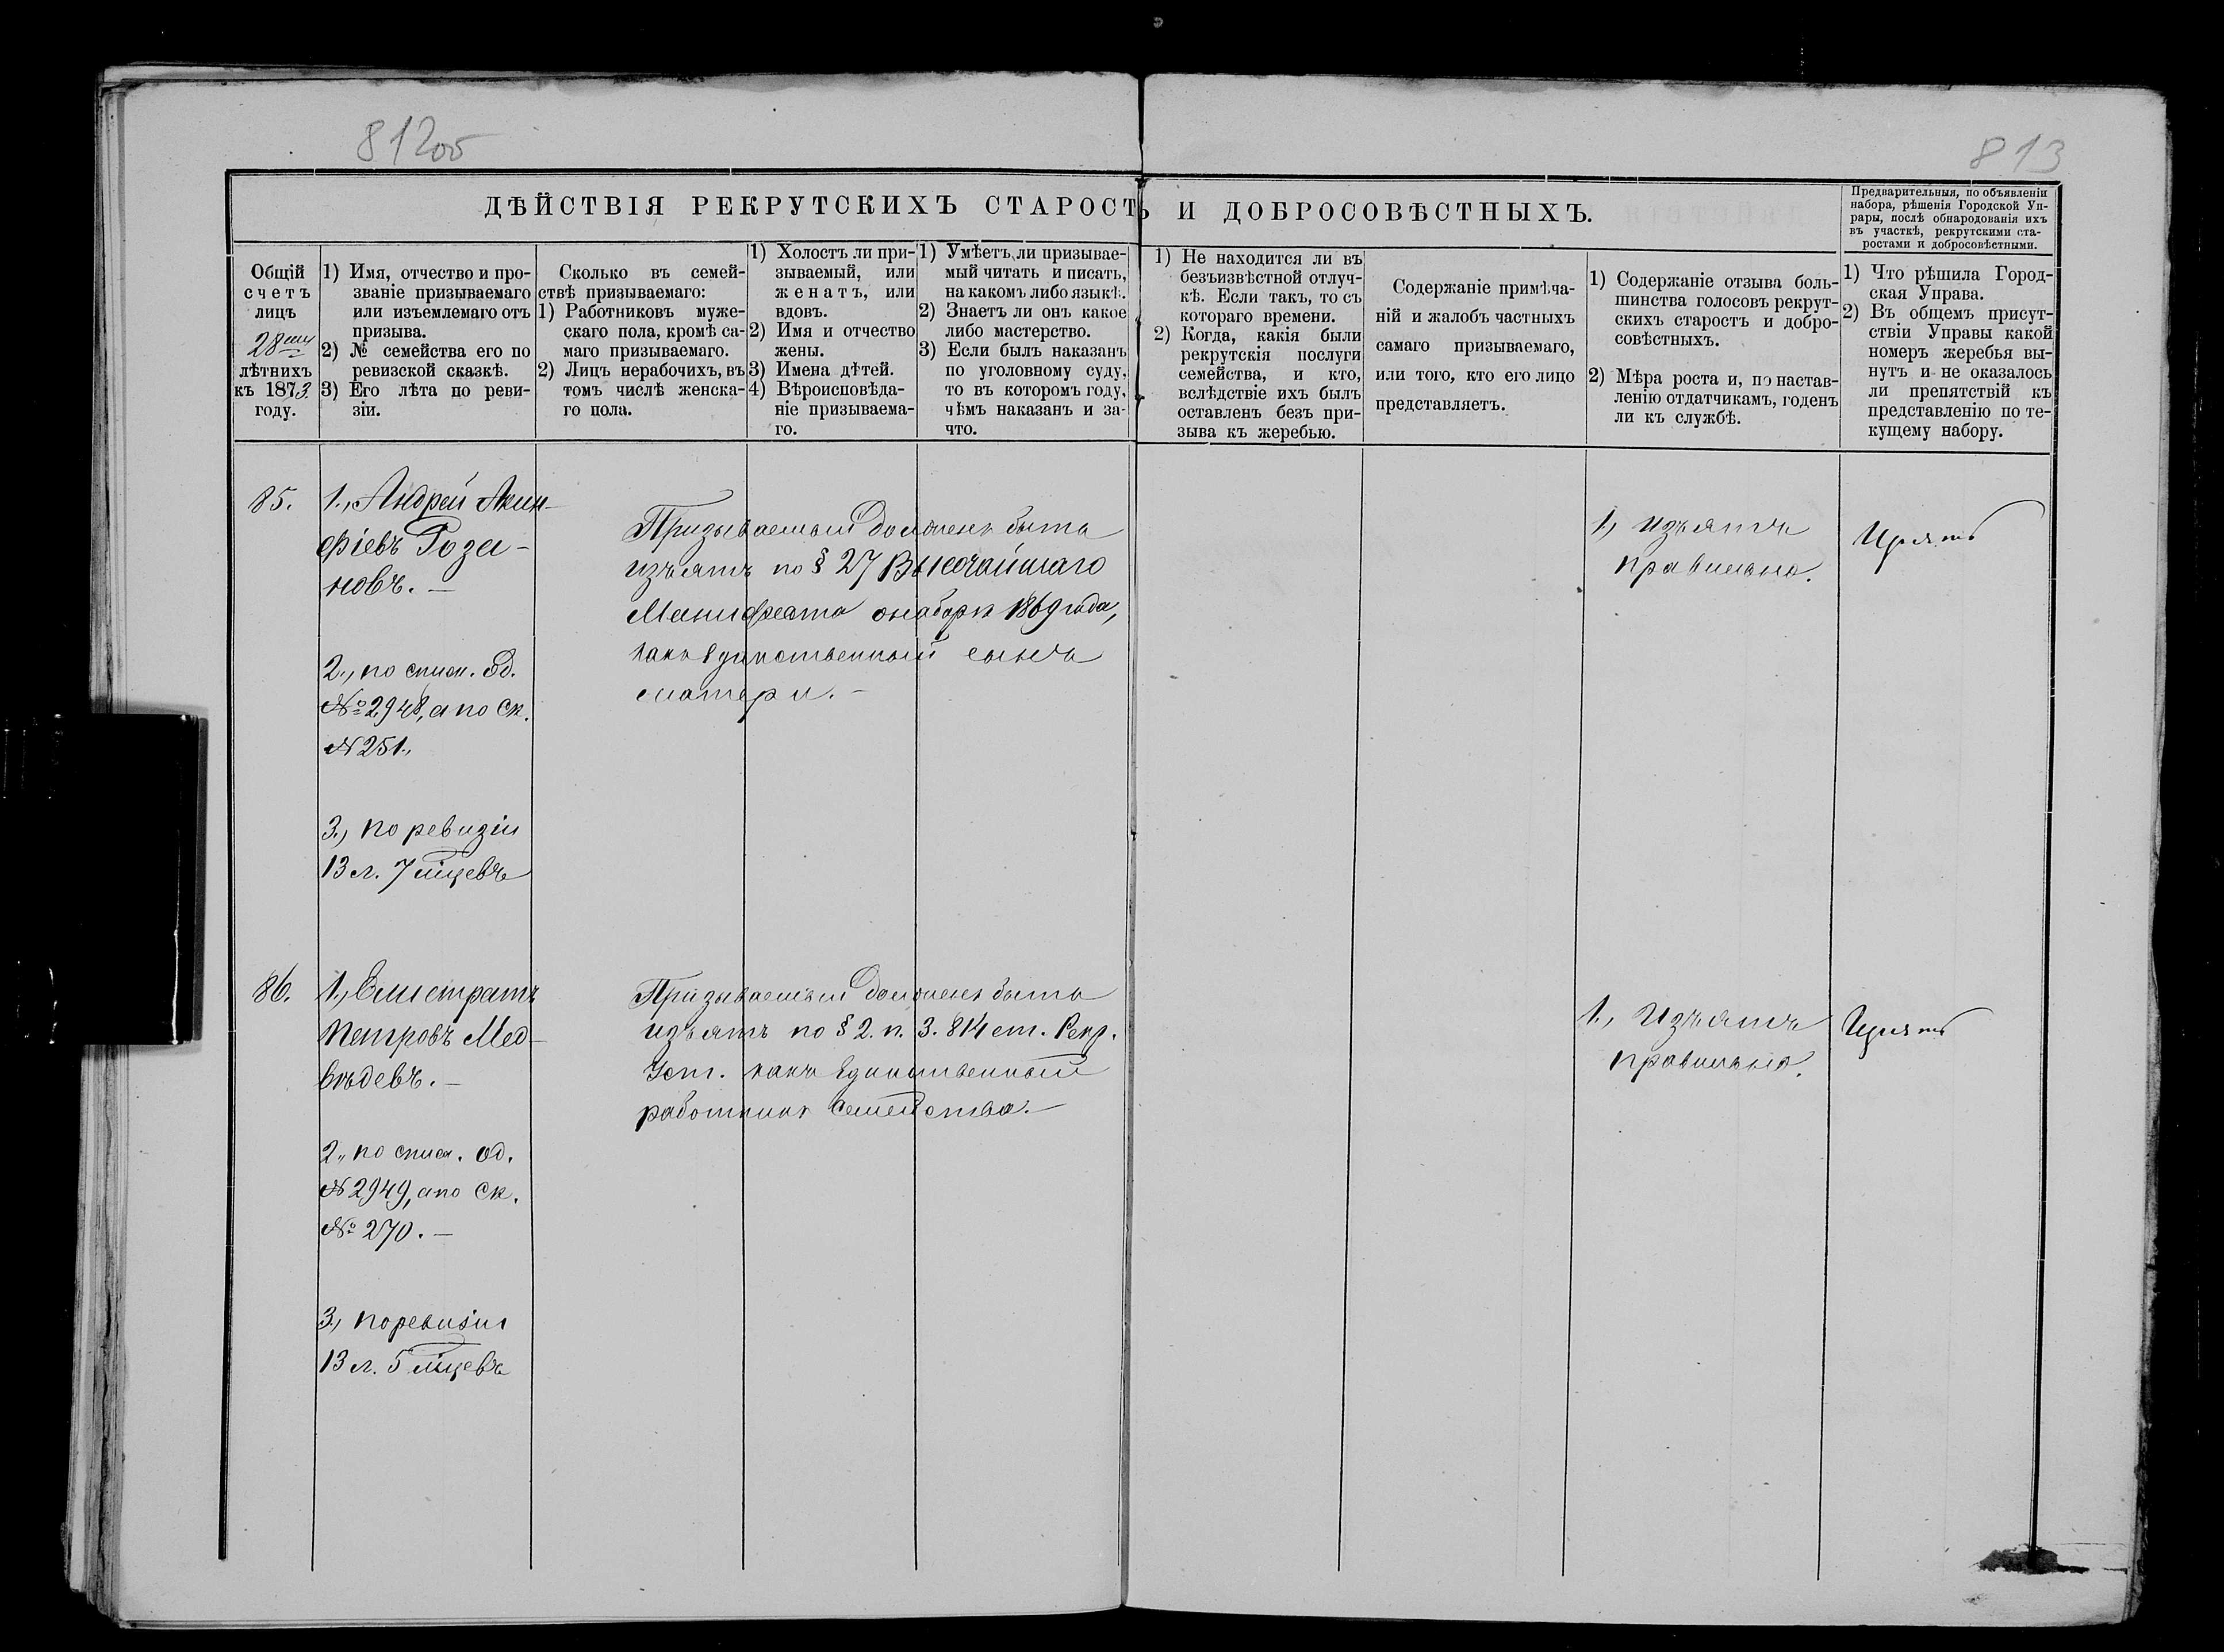 812об
813
ДѢЙСТВІЯ РЕКРУТСКИХЪ СТАРОСТЪ И ДОБРОСОВѢСТНЫХЪ.
Предварительныя, по объявленіи
набора, рѣшенія Городской Уп-
равы, послѣ обнародованія ихъ
въ участкѣ, рекрутскими ста-
ростами и добросовѣстными.
Общій
счетъ
лицъ
28ми
лѣтнихъ
къ 1873
году.
1) Имя, отчество и про-
званіе призываемаго
или изъемлемаго отъ
призыва.
2) № семейства его по
ревизской сказкѣ.
3) Его лѣта по реви-
зіи.
Сколько въ семей-
ствѣ призываемаго:
1) Работниковъ муже-
скаго пола, кромѣ са-
маго призываемаго.
2) Лицъ нерабочихъ, въ
томъ числѣ женска-
го пола.
1) Холостъ ли при-
зываемый, или
женатъ, или
вдовъ.
2) Имя и отчество
жены.
3) Имена дѣтей.
4) Вѣроисповѣда-
ніе призываема-
го.
1) Умѣетъ ли призывае-
мый читать и писать,
на какомъ либо языкѣ.
2) Знаетъ ли онъ какое
либо мастерство.
3) Если былъ наказанъ
по уголовному суду,
то въ которомъ году,
чѣмъ наказанъ и за-
что.
1) Не находится ли въ
безъизвѣстной отлуч-
кѣ. Если такъ, то съ
котораго времени.
2) Когда, какія были
рекрутскія послуги
семейства, и кто,
вслѣдствіе ихъ былъ
оставленъ безъ при-
зыва къ жеребью.
Содержаніе примѣча-
ній и жалобъ частныхъ
самаго призываемаго,
или того, кто его лицо
представляетъ.
1) Содержаніе отзыва боль-
шинства голосовъ рекрут-
скихъ старостъ и добро-
совѣстныхъ.
2) Мѣра роста и, по настав-
ленію отдатчикамъ, годенъ
ли къ службѣ.
1) Что рѣшила Город-
ская Управа.
2) Въ общемъ присут-
ствіи Управы какой
номеръ жеребья вы-
нутъ и не оказалось
ли препятствій къ
представленію по те-
кущему набору.
85.
1., Андрей Акин-
фіевъ Роза-
новъ. —
2., по списк. од.
№ 2948, а по ск.
№ 251.,
3., по ревизіи
13 л. 7 м͠цевъ
Призываемый долженъ быть
изъятъ по § 27 Высочайшаго
Манифеста о наборѣ 1869 года,
какъ единственный сынъ
матери. —
1., Изъятъ
правильно.
Изъять
86.
1., Елистратъ
Петровъ Мед-
вѣдевъ. —
2., по списк. од.
№ 2949, а по ск.
№ 270. —
3., по ревизіи
13 л. 5 м͠цевъ
Призываемый долженъ быть
изъятъ по § 2. п. 3. 814 ст. Рекр.
Уст. какъ единственный
работникъ семейства. —
1., Изъятъ
правильно.
Изъять